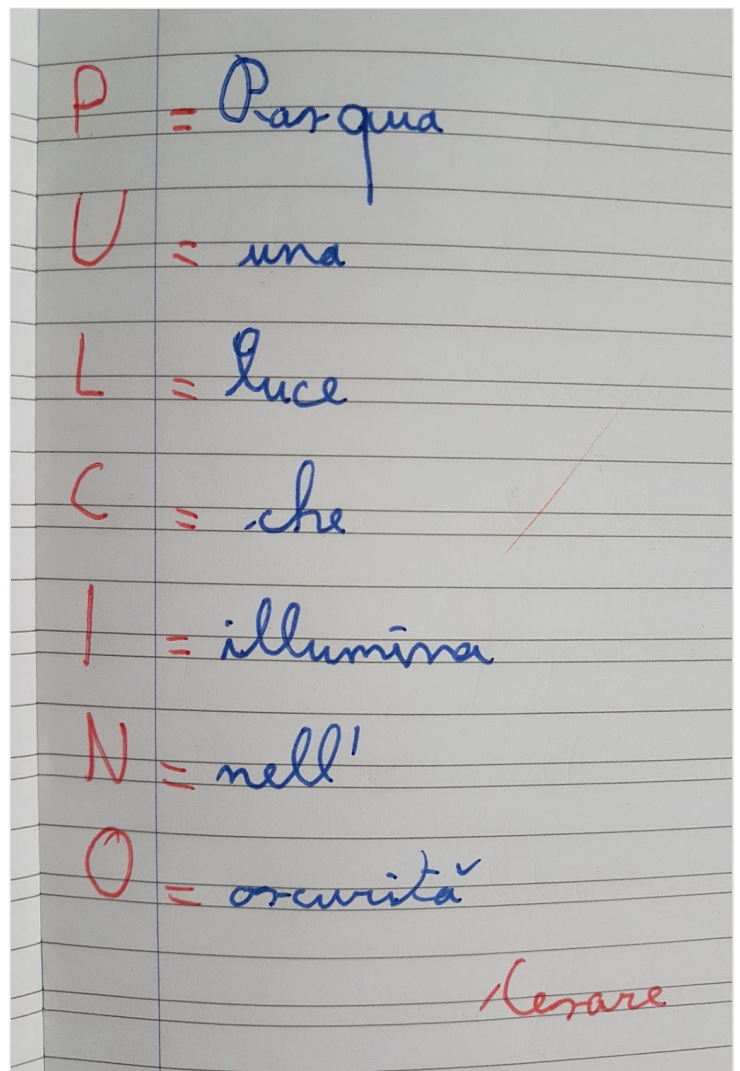 P = Pasqua
U = una
L = luce
C = che
I = illumina
N = nell'
O = oscurità
Cesare